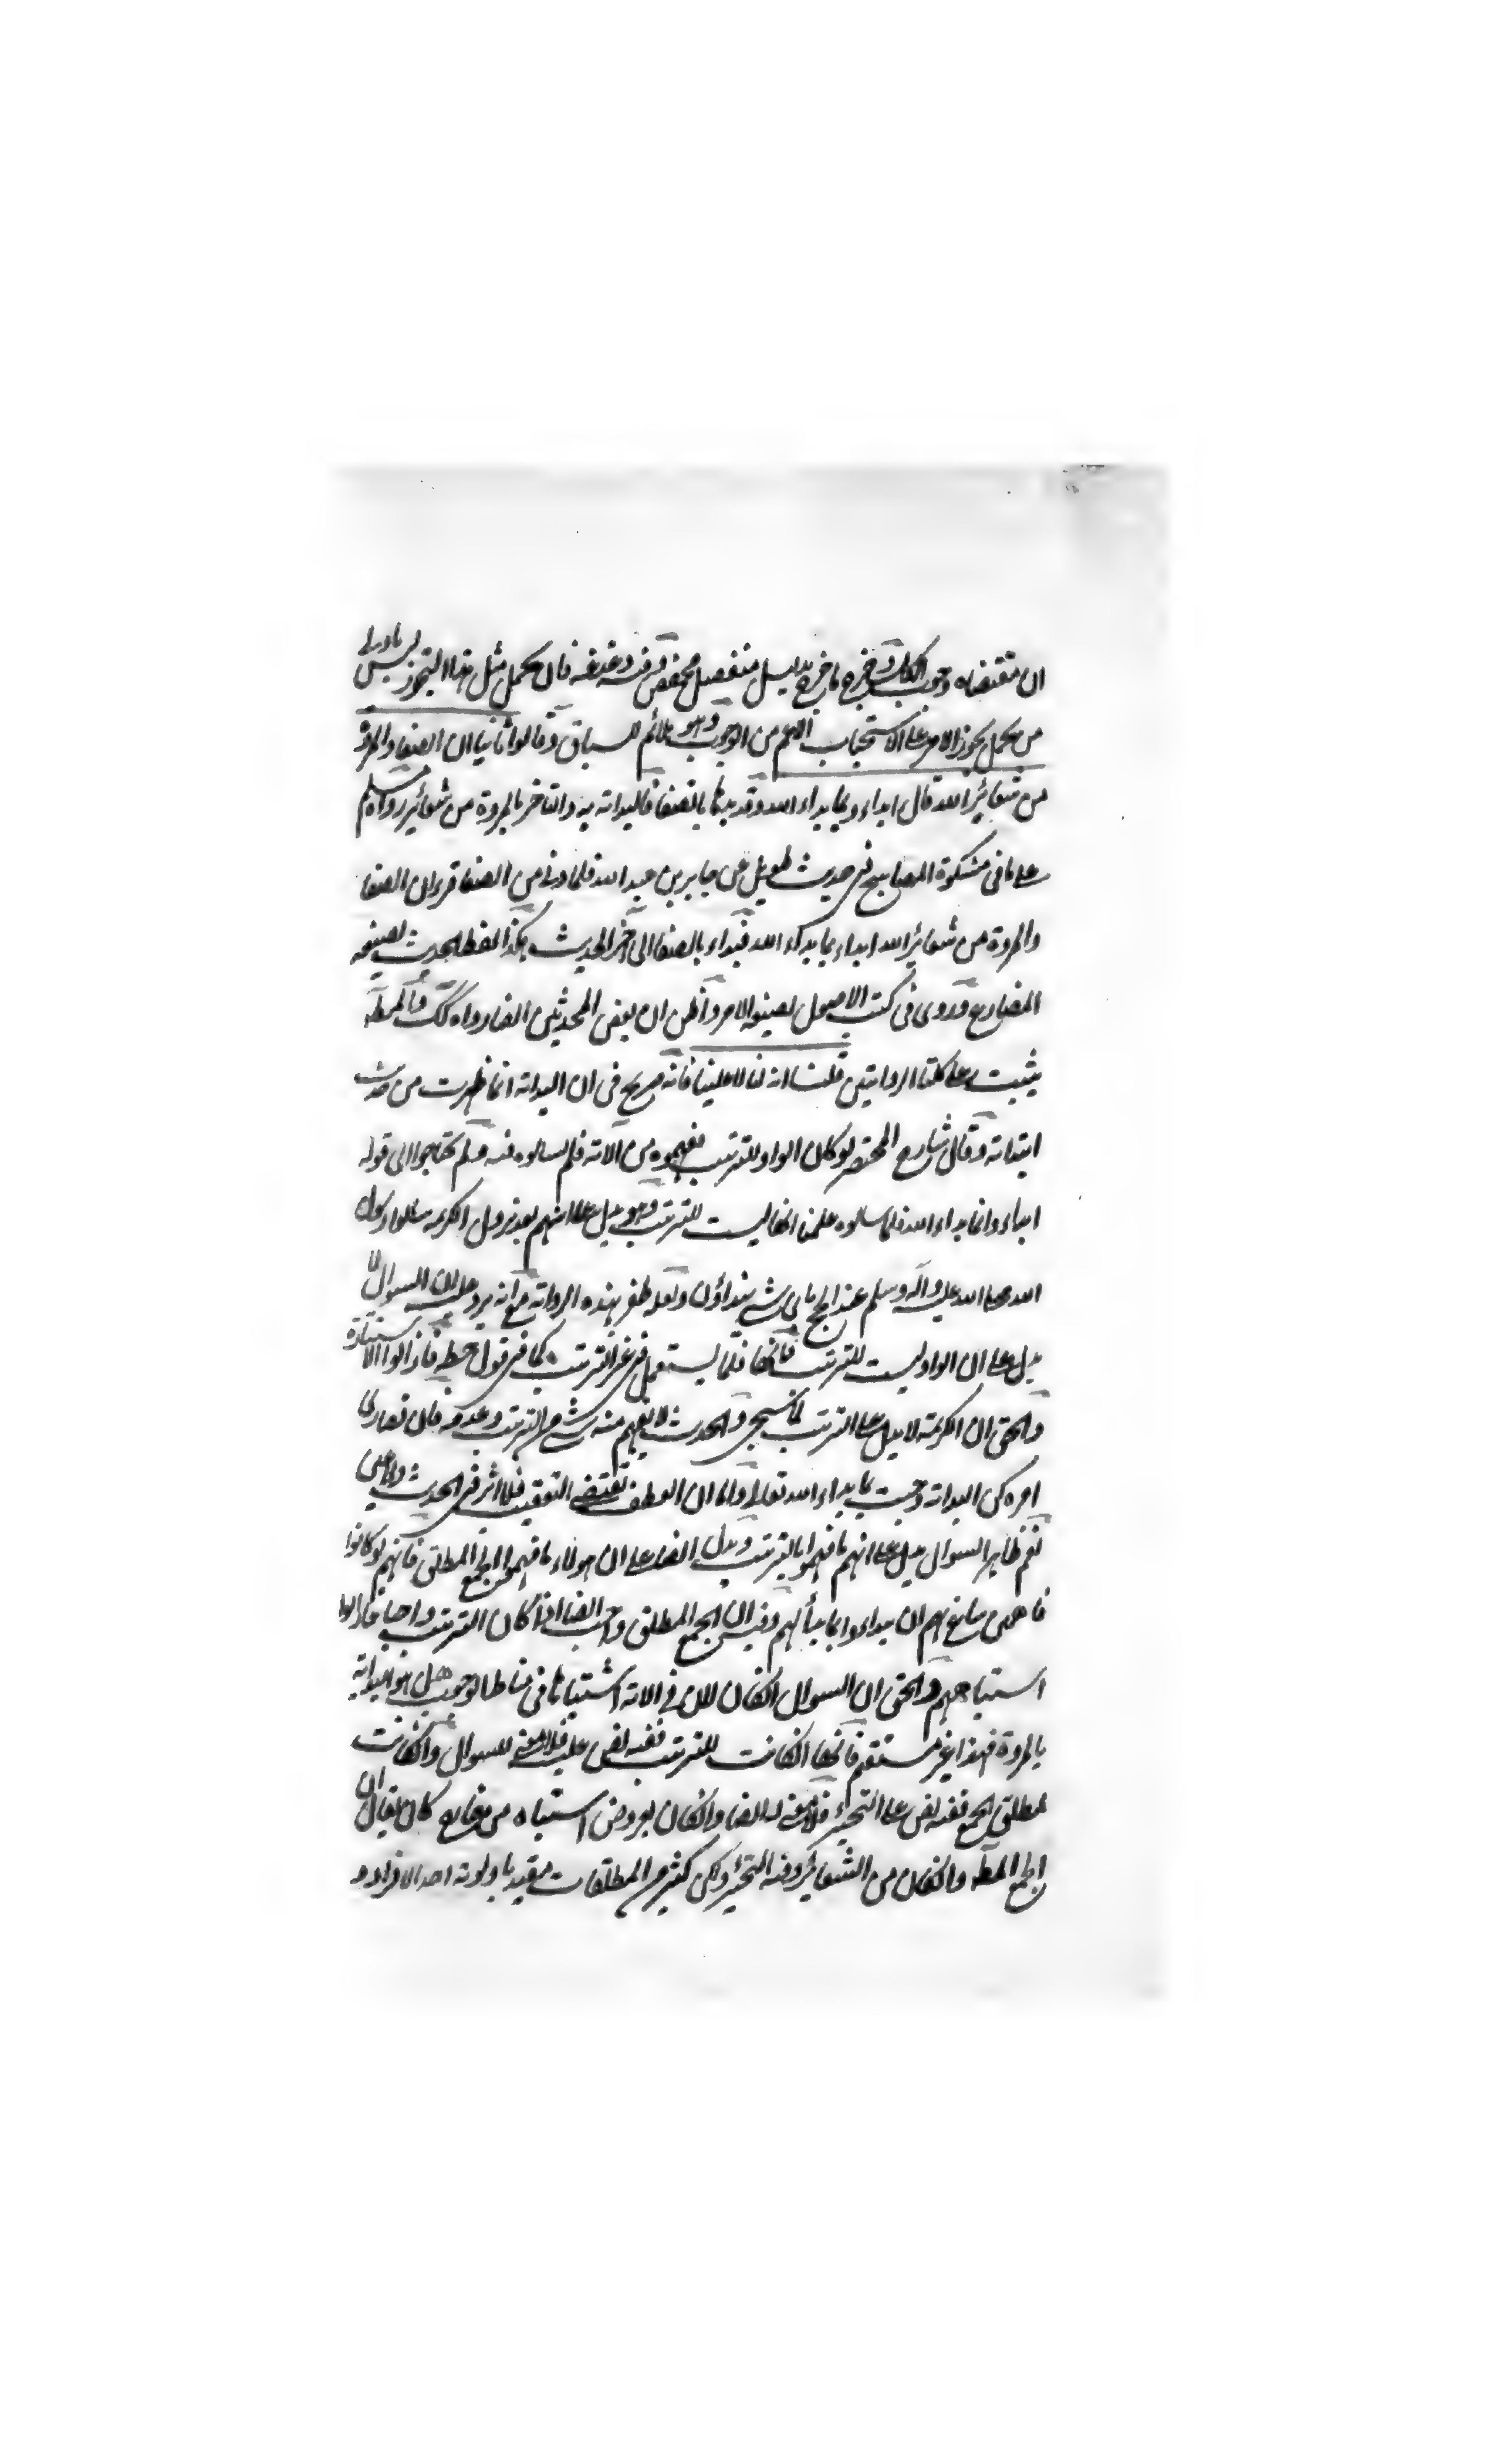 ان مقتضاه وجوب الكل وخرج ما خرج بدليل منفصل مخصص وفيه دغدغة فان محمل مثل هذا التجوز ليس باولى
من محمل تجوز الامر على الاستحباب الاعم من الوجوب وهو ملائم للسياق وقالوا ثانيا ان الصفا والمروة
من شعائر الله قال ابداءوا بما بداء الله وقد بدءنا بالصفا فالبداية به والتاخر بالمروة من شعائر رواه مسلم
على ما فى مشكوة المصابيح فى حديث طويل عن جابر بن عبد الله فلما دنى من الصفا قرء ان الصفا
والمروة من شعائر الله ابداء بما بداء الله فبداء بالصفا الى آخر الحديث هكذا لفظ الحديث بصيغة
المضارع وروى فى كتب الاصول بصيغة الامر واظن ان بعض المحدثين ايضا رواه كك والمط
يثبت على كلتا الروايتين قلنا انه لنا لا علينا فانه صريح فى ان البداية انما ظهرت من حديث
ابتدائه وقال شارح المختصر لو كان الواو للترتيب لفهموه من الآية فلم يسالوه فيه ولم يحتاجوا الى قوله
ابداءوا بما بداء الله فلما سالوه علمنا انها ليست للترتيب وهو يدل على انهم بعد نزول الكريمة سالوا رسول
الله صلى الله عليه وآله وسلم عند الحج باى شئ يبتداؤن ولعله ظفر بهذه الرواية مع انه يرد عليه ان السوال لا
يدل على ان الواو ليست للترتيب فانها قلما يستعمل فى غير الترتيب كما فى قول حطة فازالوا الاستنارة
والحق ان الكريمة لا يدل على الترتيب كما سيجئ والحديث لا يفهم منه شئ من الترتيب وعدمه فان قصارى
امره كن البداية وجبت بما بداء الله تعالى واما ان العطف يقتضى التعقيب فلا اثر فى الحديث ولا عين
نعم ظاهر السوال يدل على انهم ما فهموا بالترتيب ويدل ايضا على ان هولاء ما فهموا الجمع المطلق فانهم لو كانوا
فاهمين ساغ لهم ان يبداءوا بما بدأ لهم وليس ان الجمع المطلق واجب ايضا اذا كان الترتيب واجبا فازالوا
استباههم والحق ان السوال ان كان لان فى الآية اشتباها فى مناط الوجوب هل هو البداية
بالمروة فهذا غير مستقيم فانها ان كانت للترتيب ففيه نص عليه فلا معنى للسوال وان كانت
لمطلق الجمع ففيه نص على التخيير فلا معنى له ايضا وان كان لعروض اشتباه من مقابع كان يقال ان
الجمع المط وان كان من الشعائر كروفيه التخيير ولكن كثير من المطلقات مقيد باولوية احد الافراد و